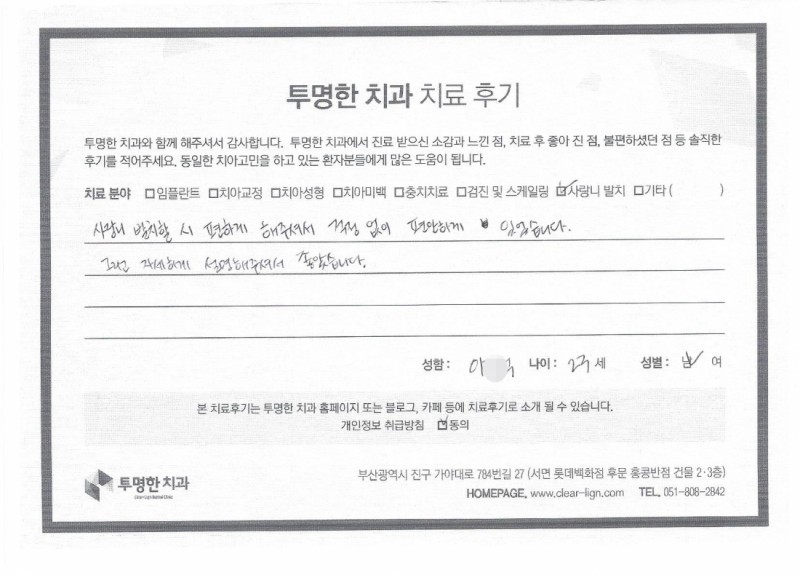 투명한 치과 치료 후기
투명한 치과와 함께 해주셔서 감사합니다. 투명한 치과에서 진료 받으신 소감과 느낀 점, 치료 후 좋아 진 점, 불편하셨던 점 등 솔직한
후기를 적어주세요. 동일한 치아고민을 하고 있는 환자분들에게 많은 도움이 됩니다.
치료 분야 □임플란트 □치아교정 □치아성형 □치아미백 □충치치료 □검진 및 스케일링 ☑사랑니 발치 □기타 ( )
사랑니 발치할 시 편하게 해주셔서 걱정 없이 편안하게 있었습니다.
그리고 자세하게 설명해주셔서 좋았습니다.
성함: 이 나이: 27 세 성별: 남 여
본 치료후기는 투명한 치과 홈페이지 또는 블로그, 카페 등에 치료후기로 소개 될 수 있습니다.
개인정보 취급방침 ☑동의
투명한 치과
부산광역시 진구 가야대로 784번길 27 (서면 롯데백화점 후문 홍콩반점 건물 2·3층)
HOMEPAGE. www.clear-lign.com TEL. 051-808-2842